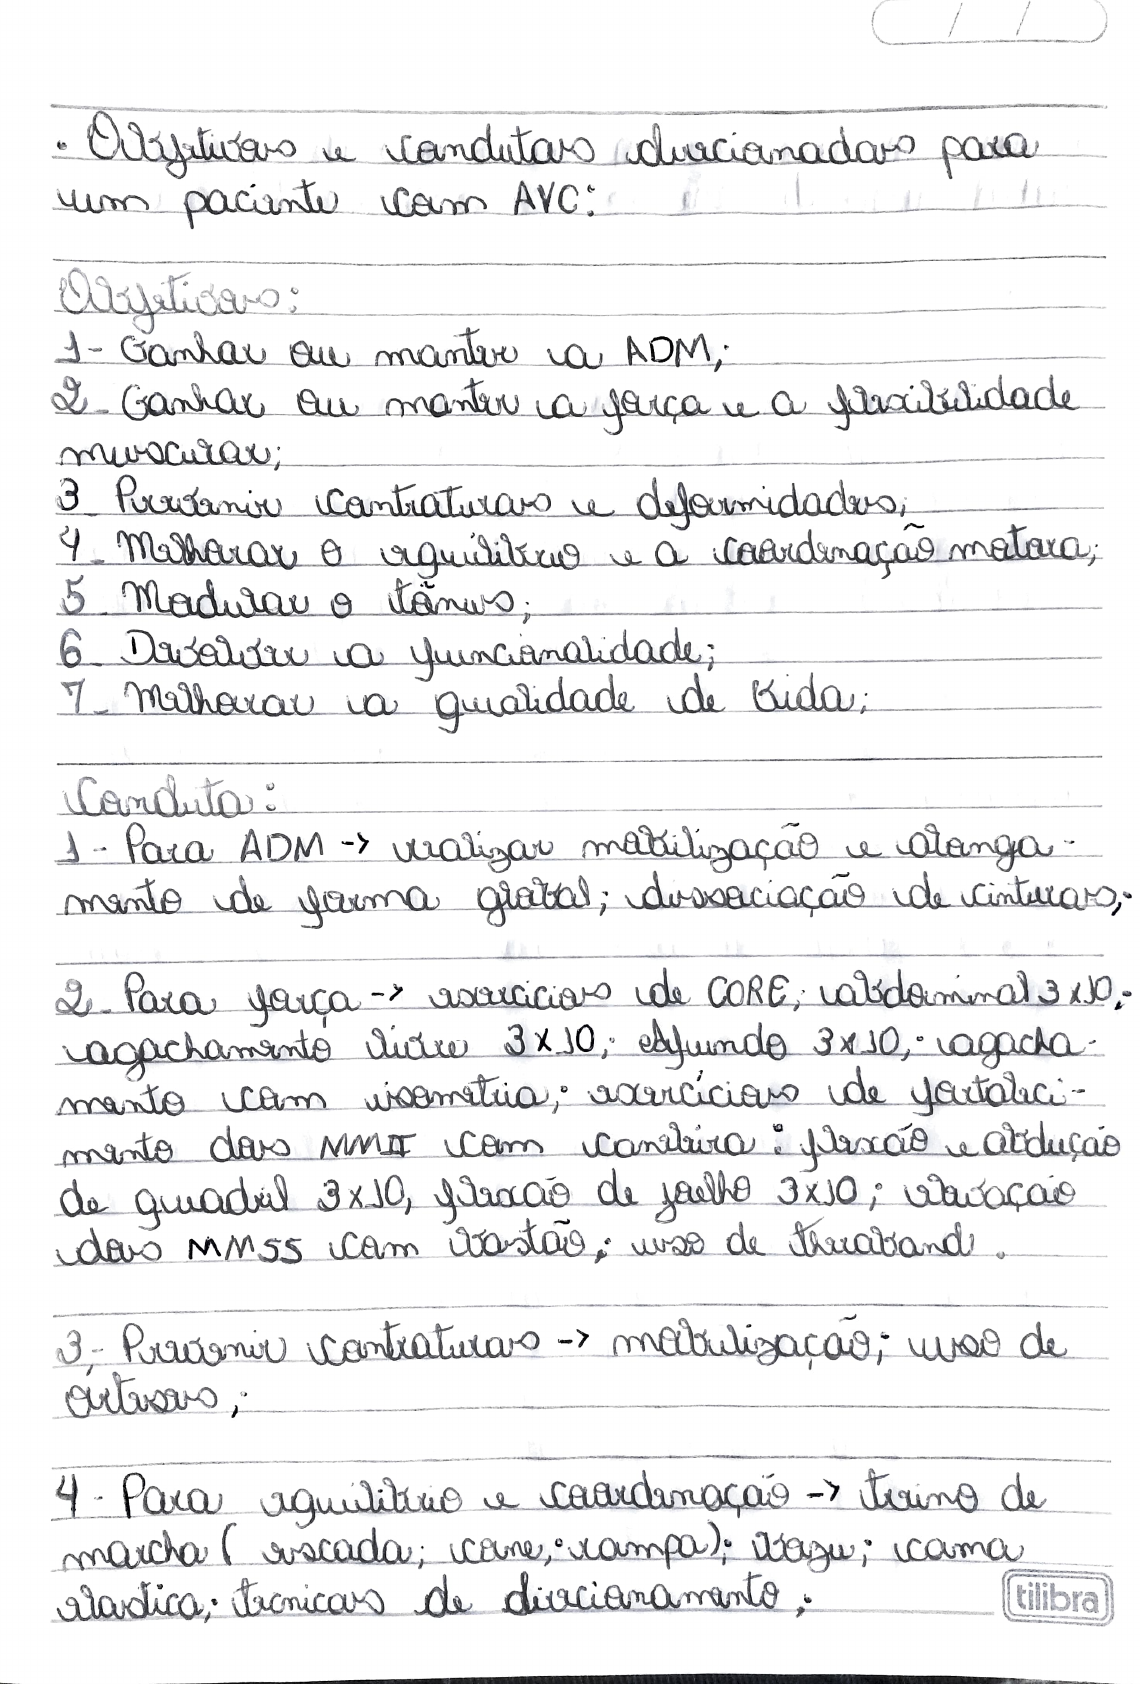 / /
• Objetivos e condutas direcionadas para
um paciente com AVC:
Objetivos:
1- Ganhar ou manter a ADM;
2- Ganhar ou manter a força e a flexibilidade
muscurar;
3- Prevenir contraturas e deformidades;
4- Melhorar o equilibrio e a coordenação motora;
5- Modular o tônus;
6- Devolver a funcionalidade;
7- Melhorar a qualidade de vida;
Conduta:
1- Para ADM -> realizar mobilização e alonga-
mento de forma global; dissociação de cinturas;
2- Para força -> exercicios de CORE; abdominal 3x10;
agachamento livre 3x10; afundo 3x10; agacha-
mento com isometria; exercícios de fortaleci-
mento dos MMII com caneleira: flexão e abdução
de quadril 3x10, flexão de joelho 3x10; elevação
dos MMSS com bastão; uso de theraband.
3- Prevenir contraturas -> mobilização; uso de
órteses;
4- Para equilibrio e coordenação -> treino de
marcha ( escada; cone; rampa); bozu; cama
elastica; tecnicas de direcionamento;
tilibra